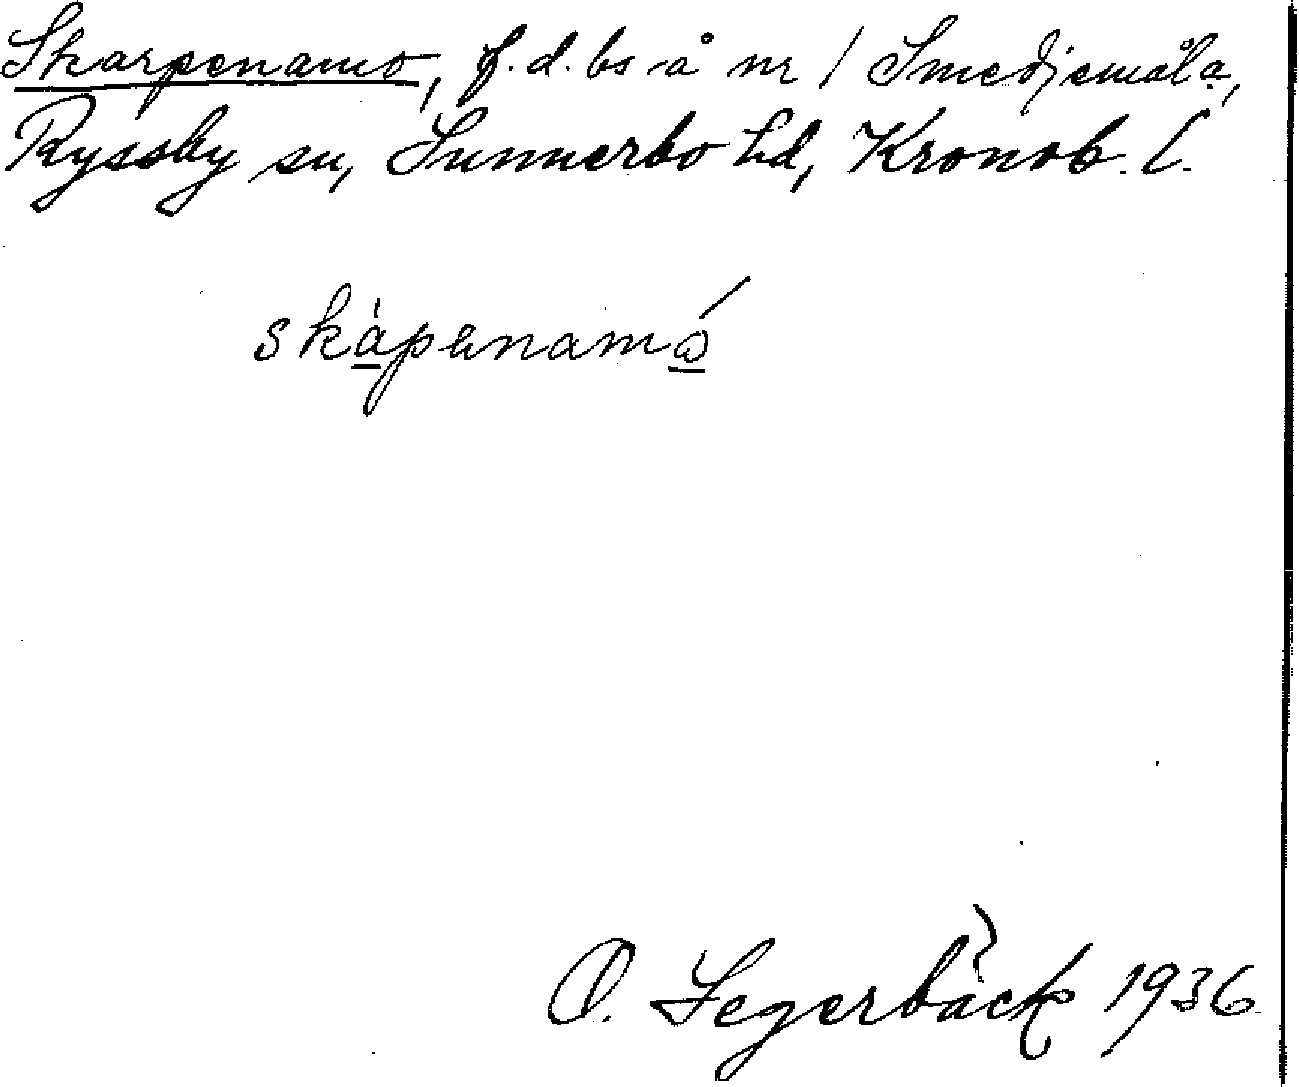 Skarpenamo, f.d. bs å nr 1 Smedjemåla,
Ryssby sn, Sunnerbo hd, Kronob. l.
skàpanamó
O. Segerbäck 1936